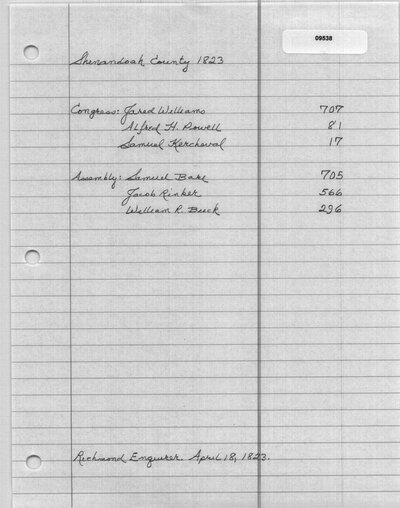 09538
Shenandoah County 1823
Congress: Jared Williams 707
Alfred H. Powell 81
Samuel Kercheval 17
Assembly: Samuel Bare 705
Jacob Rinker 566
William R. Buck 296
Richmond Enquirer. April 18, 1823.